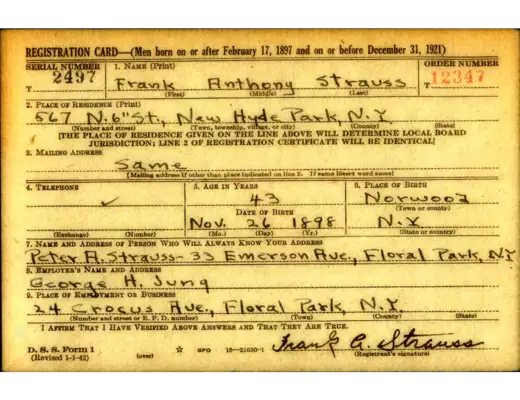 REGISTRATION CARD—(Men born on or after February 17, 1897 and on or before December 31, 1921)
SERIAL NUMBER
T 2497
1. NAME (Print)
Frank Anthony Strauss
(First) (Middle) (Last)
ORDER NUMBER
T 12347
2. PLACE OF RESIDENCE (Print)
567 N. 6" St., New Hyde Park, N.Y.
(Number and street) (Town, township, village, or city) (County) (State)
[THE PLACE OF RESIDENCE GIVEN ON THE LINE ABOVE WILL DETERMINE LOCAL BOARD
JURISDICTION; LINE 2 OF REGISTRATION CERTIFICATE WILL BE IDENTICAL]
3. MAILING ADDRESS
Same
[Mailing address if other than place indicated on line 2. If same insert word same]
4. TELEPHONE
✓
(Exchange) (Number)
5. AGE IN YEARS
43
DATE OF BIRTH
Nov. 26 1898
(Mo.) (Day) (Yr.)
6. PLACE OF BIRTH
Norwood
(Town or county)
N.Y.
(State or country)
7. NAME AND ADDRESS OF PERSON WHO WILL ALWAYS KNOW YOUR ADDRESS
Peter A. Strauss - 33 Emerson Ave., Floral Park, N.Y
8. EMPLOYER'S NAME AND ADDRESS
George H. Jung
9. PLACE OF EMPLOYMENT OR BUSINESS
24 Crocus Ave., Floral Park, N.Y.
(Number and street or R. F. D. number) (Town) (County) (State)
I AFFIRM THAT I HAVE VERIFIED ABOVE ANSWERS AND THAT THEY ARE TRUE.
D. S. S. Form 1
(Revised 1-1-42)
(over)
☆ GPO 16—21630-1
Frank A. Strauss
(Registrant's signature)